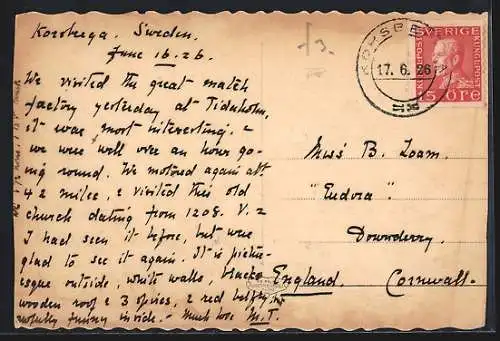 Korsberga. Sweden.
June 16. 26.
We visited the great match
factory yesterday at Tidaholm,
it was most interesting. &
we were well over an hour go-
ing round. We motored again abt
42 miles, & visited this old
church dating from 1208. V. &
I had seen it before, but were
glad to see it again. It is pictur-
esque outside, white walls, black
wooden roof & 3 spires, & red belfry, &
awfully funny inside. - Much love M.T.
17. 6. 26
SVERIGE
15 ÖRE
Miss B. Loam.
"Eudora"
Downderry.
England. Cornwall.